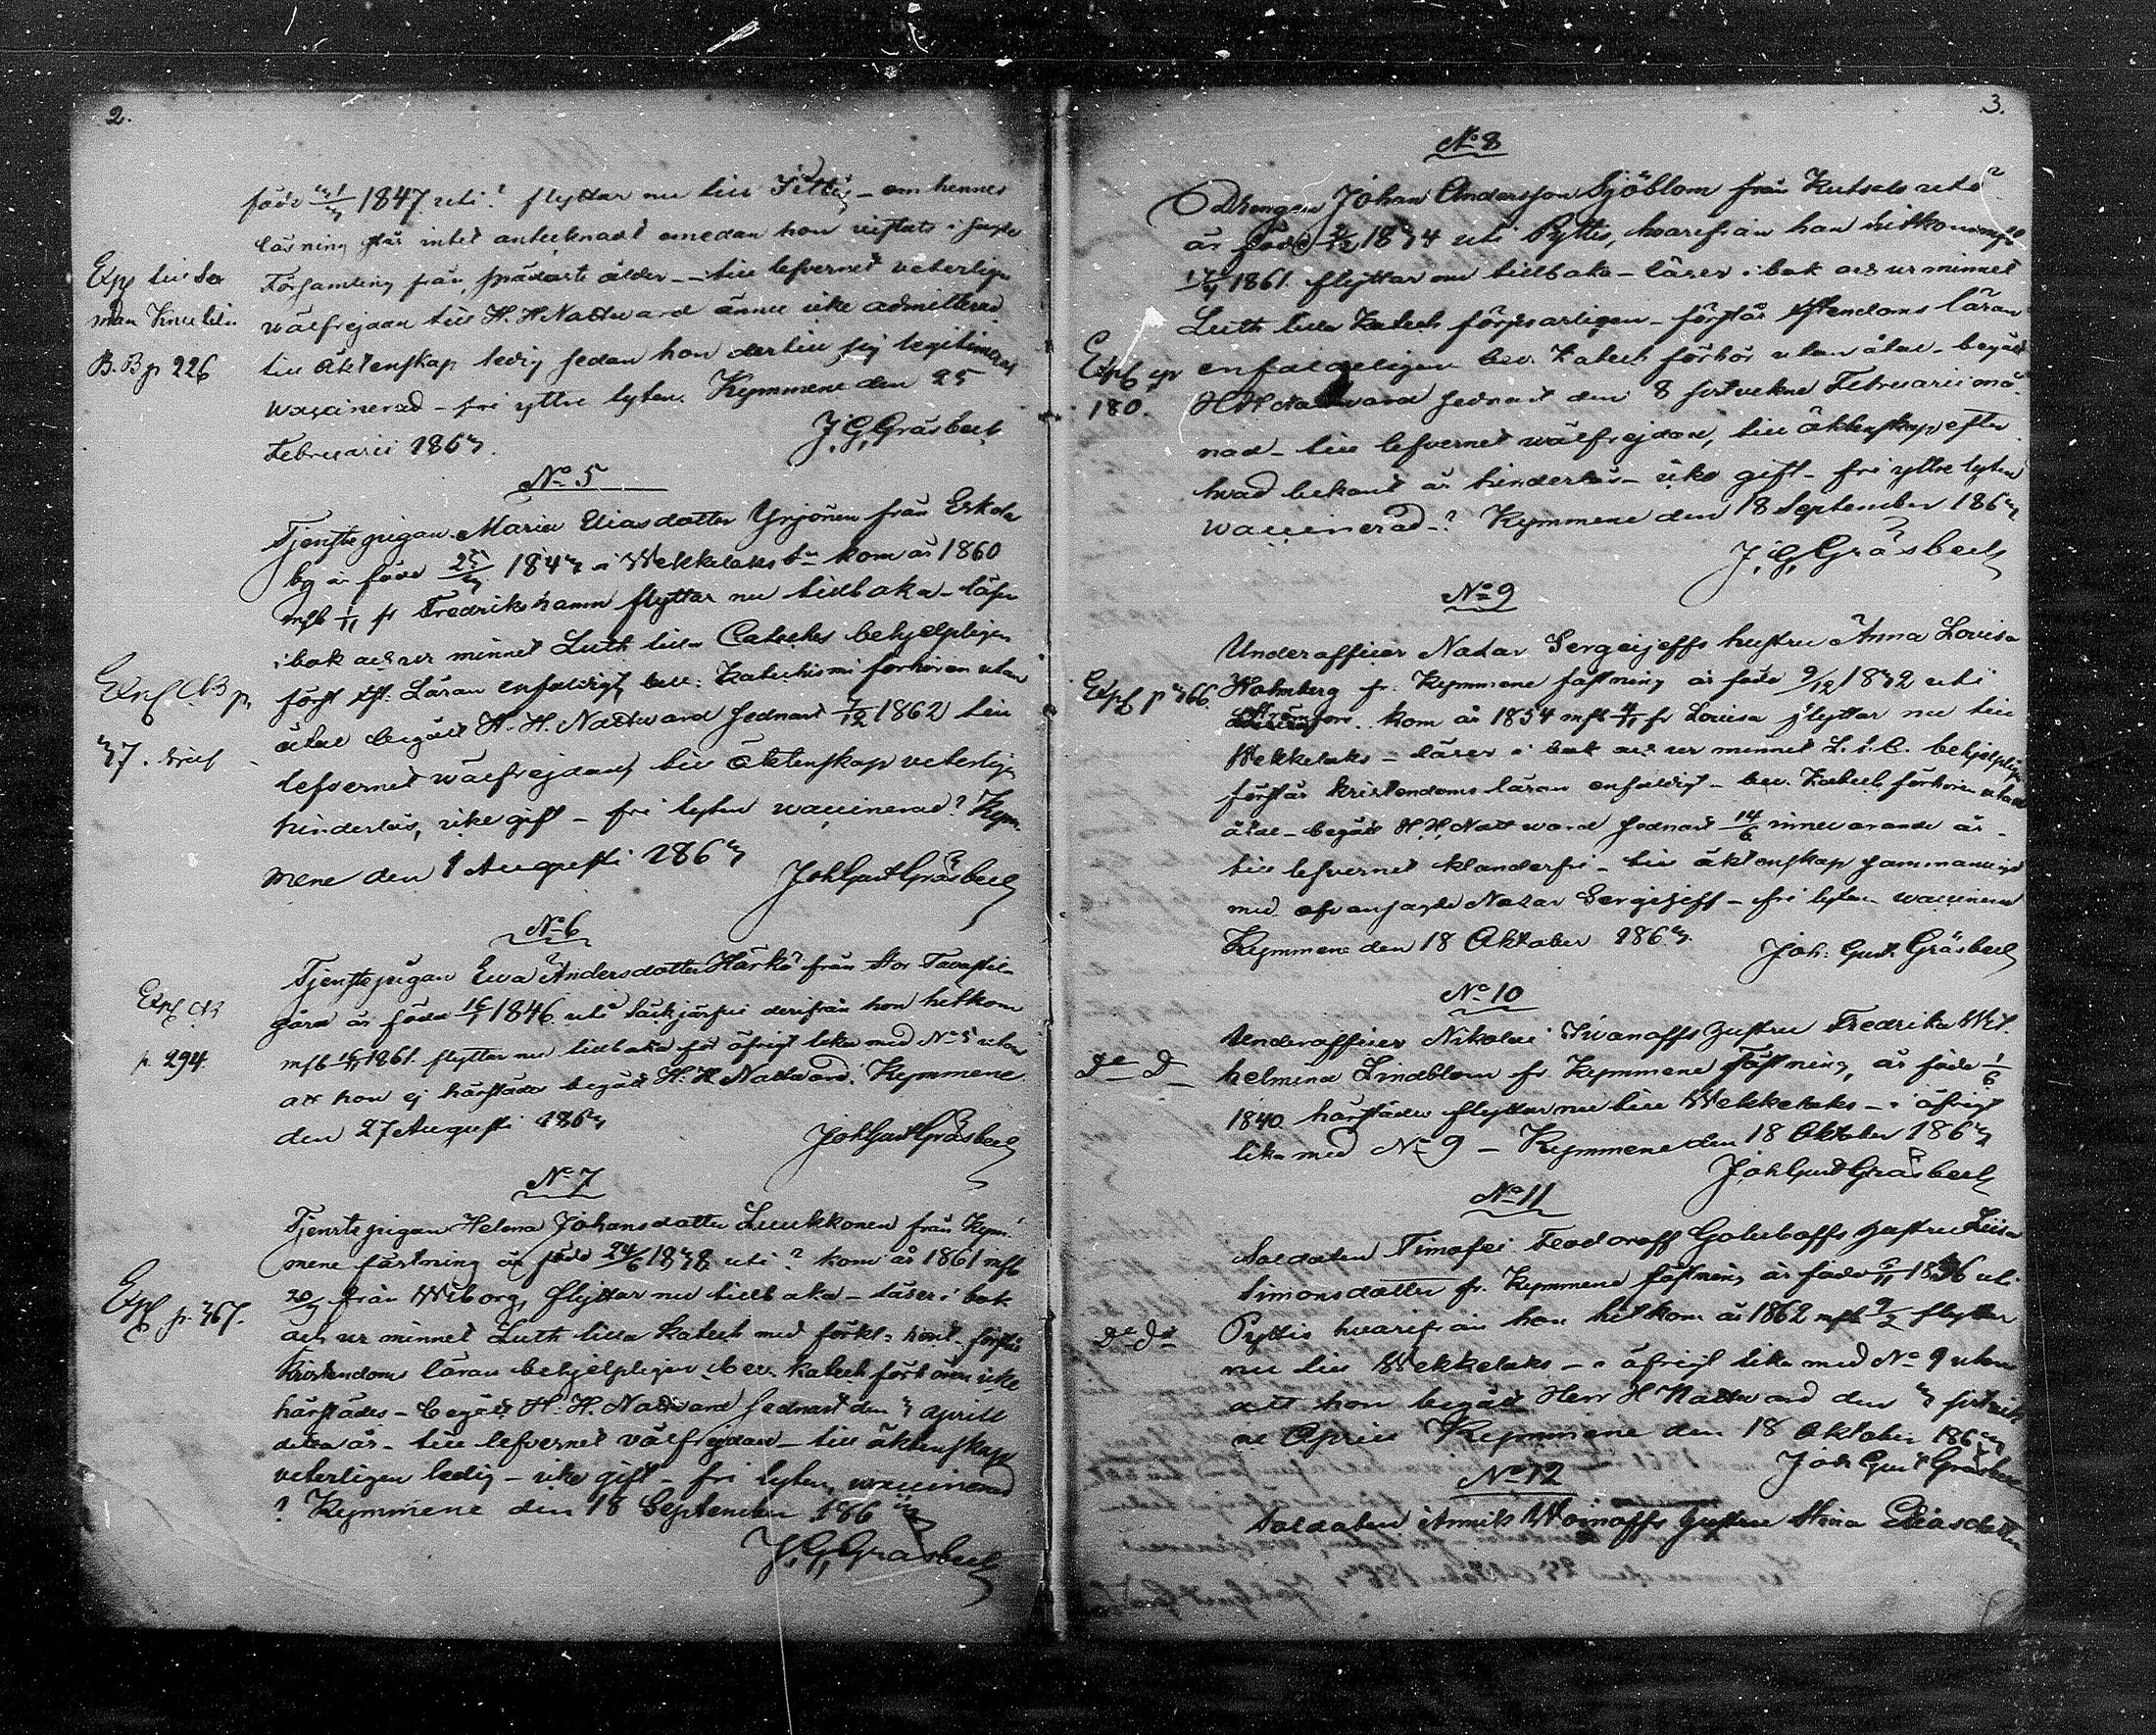 2.
född 1/3 1847 uti? flyttar nu till Jittis - om hennes
läsning står intet antecknadt emedan hon vistats i sagde
Församling från spädaste ålder - till lefvernet veterligen
wälfrejdan till H. H Nattward ännu icke admitterad
till äktenskap ledig sedan hon dertill sig legitimerat
waccinerad - fri yttre lyten. Kymmene den 25
Februarii 1863.
J. G. Gräsbeck
Exp till So
man
B. B p 226
No 5
Tjenstepigan Maria Eliasdotter Yrjönen från Eskola
by är född 25/3 1843 i Wekkelaks Sn kom år 1860
mfb 1/11 fr Fredrikshamn flyttar nu tillbaka - läser
i bok och ur minnet Luth lilla Cateches behjelpligen
först Xst. Läran enfaldigt bev: Katechismi förhören utan
åtal begått H. H. Nattward sednast 7/12 1862 till
lefvernet wälfrejdan, till äktenskap veterligen
hinderlös, icke gift - fri lyten waccinerad? Kym-
mene den 1 Augusti 1863
Joh Gust Gräsbeck
Exp CB p.
37.
No 6
Tjenstepigan Ewa Andersdotter Härkö från Stor Tavastil-
gård är född 16/1 1846 uti Säckjärfvi derifrån hon hitkom
mfb 1861. flyttar nu tillbaka för öfrigt lika med No 5 utan
att hon ej härstädes begått H. H Nattward. Kymmene
den 27 Augusti 1863
Joh Gust Gräsbeck
Exp CB
p. 294.
No 7
Tjenstepigan Helena Johansdotter Luukkonen från Kym-
mene fästning är född 24/6 1838 uti? kom år 1861 mfb
20/7 från Wiborg, flyttar nu tillbaka - läser i bok
och ur minnet Luth lilla Katech med förkl: först
Kristendoms läran behjelpligen bev. Katech förhören icke
härstädes - begått H. H. Nattward sednast den 3 April
detta år - till lefvernet välfrejdan - till äktenskap
veterligen ledig - icke gift - fri lyten, waccinerad
? Kymmene den 18 September 1863
J. G. Gräsbeck
Exp p. 367.
3.
No 8
Drängen Johan Andersson Sjöblom från Kutsels uti
är född 2/12 1834 uti Pyttis, hvarifrån han hitkom mfb
1861. flyttar nu tillbaka - läser i bok och ur minnet
Luth lilla Katech försvarligen - förstår Xstendoms läran
enfaldeligen bev. Katech förhör utan åtal - begått
H H Nattward sednast den 8 sistvekne Februarii må-
nad - till lefvernet wälfrejdad, till äktenskap efter
hvad bekant är hinderlös - icke gift - fri yttre lyten
waccinerad -? Kymmene den 18 September 1863
J. G. Gräsbeck
Exp p
180.
No 9
Underofficer Nasar Sergeijeffs hustru Anna Lovisa
Holmberg fr. Kymmene fästning är född 9/12 1832 uti
Strömfors. kom år 1854 mfb 4/11 fr Lovisa flyttar nu till
Wekkelaks - läser i bok och ur minnet L. l. C. behjelpligen
förstår kristendoms läran enfaldigt - bev. Katech förhören utan
åtal - begått H. H. Nattward sednast 14/6 innevarande år -
till lefvernet klanderfri - till äktenskap sammanvigd
med ofvansagde Nasar Sergejeff - fri lyten waccinerad
Kymmene den 18 Oktober 1863.
Joh: Gust. Gräsbeck
Exp p 366.
No 10
Underofficer Nikolai Iwanoffs hustru Fredrika Wil-
helmina Lindblom fr. Kymmene fästning, är född 1/6
1840 härstädes flyttar nu till Wekkelaks - i öfrigt
lika med No 9 - Kymmene den 18 Oktober 1863
Joh Gust Gräsbeck
Do Do
No 11
Soldaten Timofei Feodoroff Goluboffs hustru Liisa
Simonsdotter fr. Kymmene fästning är född 5/11 1836 uti
Pyttis hvarifrån hon hitkom år 1862 mfb 9/2 flyttar
nu till Wekkelaks - i öfrigt lika med No 9 utan
att hon begått Herr H Nattward den 3 sistvik-
ne April Kymmene den 18 Oktober 1863
Joh Gust Gräsbeck
Do Do
No 12
Soldaten Woinoffs hustru Stina Eliasdotter